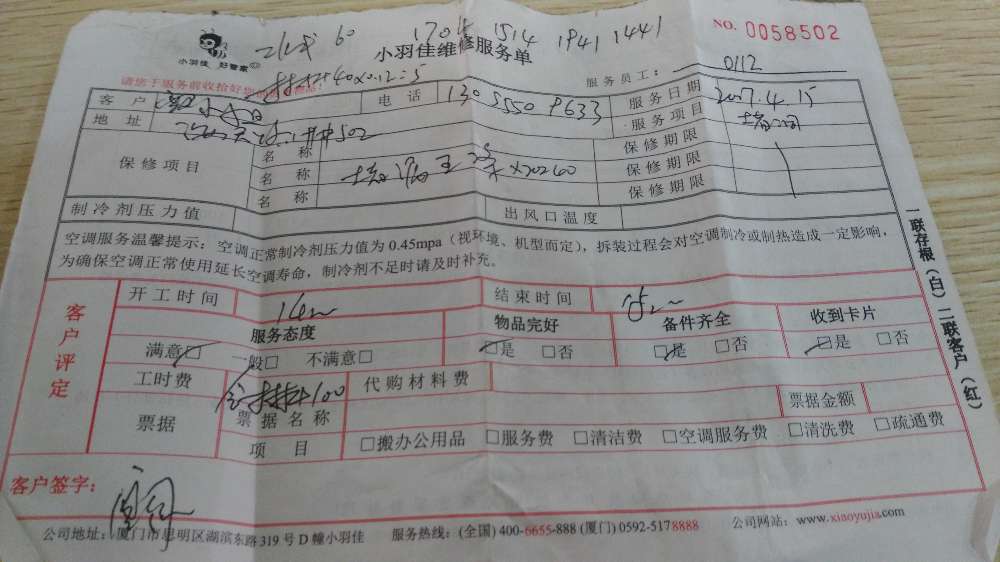 60 1704 1514 1941 1441
小羽佳 好管家
小羽佳维修服务单
NO. 0058502
40x0.12=5
请您于服务前收拾好您的
服务员工: 0112
客户 电话 130 5550 9633 服务日期 2007.4.15
地址 502 服务项目
保修项目 名称 保修期限
名称 保修期限
名称 保修期限
制冷剂压力值 出风口温度
空调服务温馨提示: 空调正常制冷剂压力值为 0.45mpa (视环境、机型而定), 拆装过程会对空调制冷或制热造成一定影响,
为确保空调正常使用延长空调寿命, 制冷剂不足时请及时补充。
一联存根(白) 二联客户(红)
客户评定
开工时间 结束时间
服务态度 物品完好 备件齐全 收到卡片
满意□ 一般□ 不满意□ □是 □否 □是 □否 □是 □否
工时费 100 代购材料费
票据 票据名称 票据金额
项目 □搬办公用品 □服务费 □清洁费 □空调服务费 □清洗费 □疏通费
客户签字:
公司地址: 厦门市思明区湖滨东路319号D幢小羽佳 服务热线: (全国) 400-6655-888 (厦门) 0592-5178888 公司网站: www.xiaoyujia.com